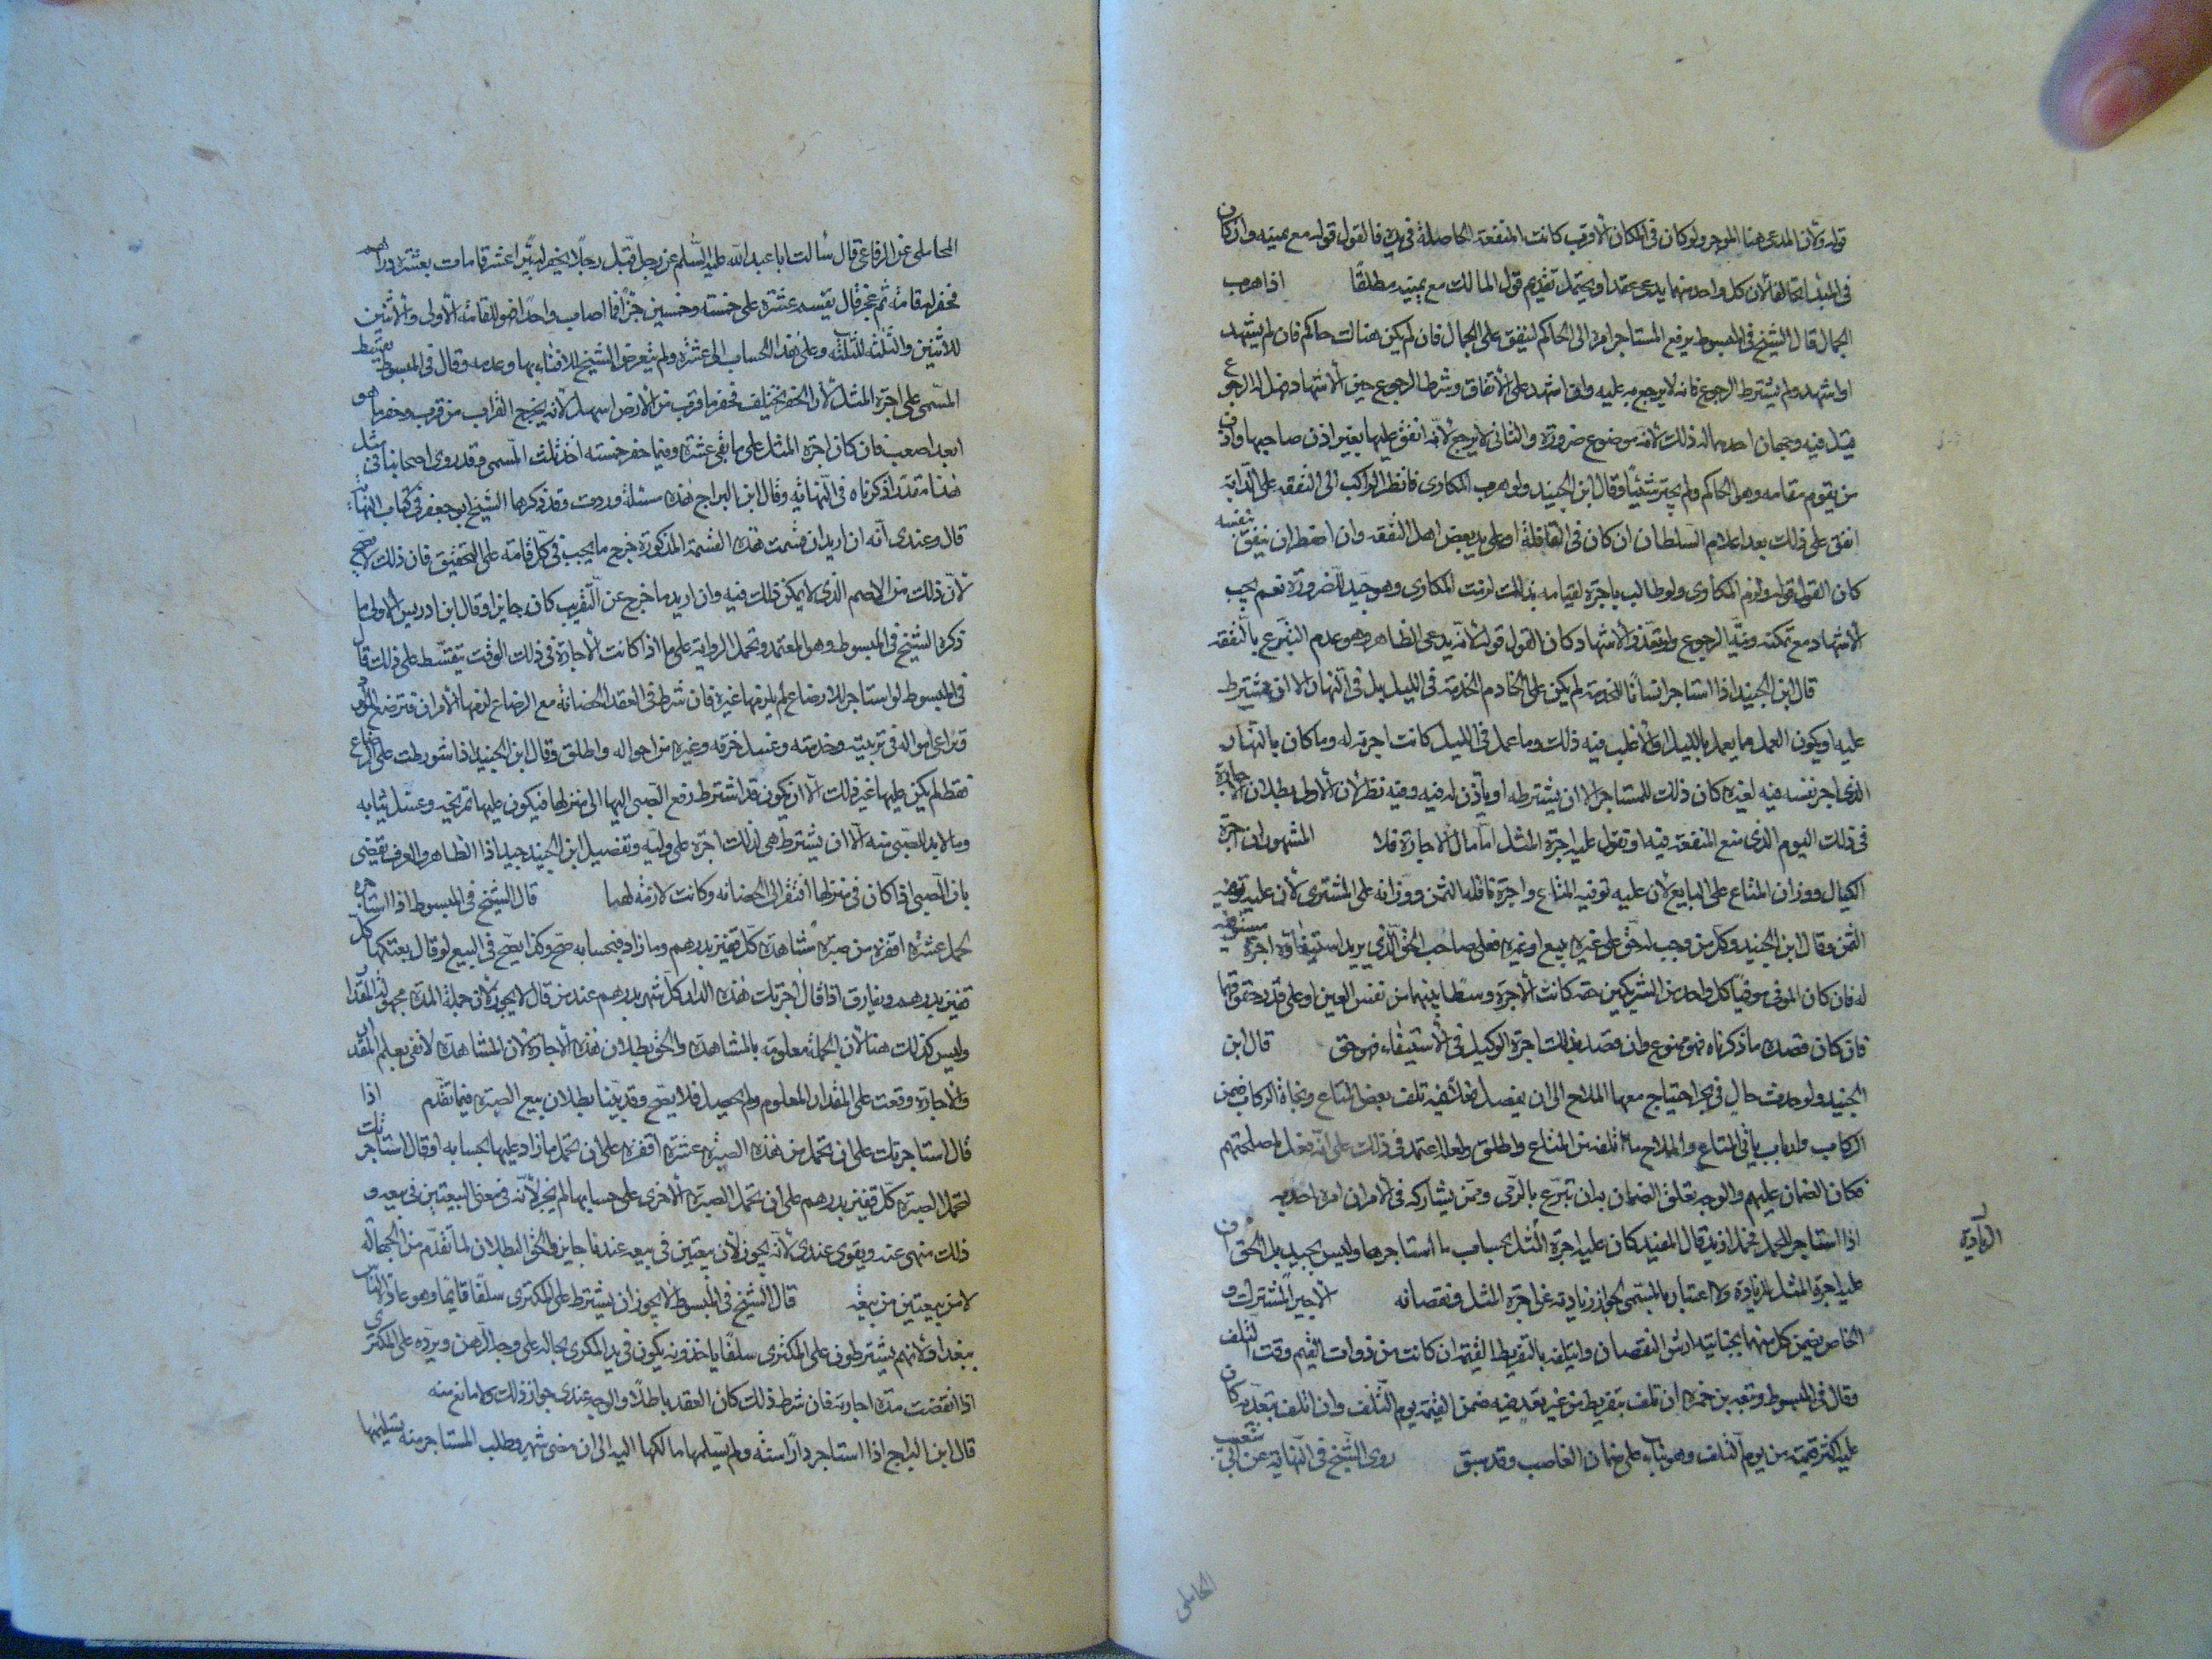 قوله ولأن المدعى هنا الموجر ولو كان في المكان الأقرب كانت المنفعة الحاصلة في يده فالقول قوله مع يمينه وان كان
في المبدأ تحالفا لأن كل واحد منهما يدعى عقدا ويحتمل تقديم قول المالك مع يمينه مطلقًا اذا هرب
الجمال قال الشيخ في المبسوط يرفع المستاجر امره الى الحاكم لينفق على الجمال فان لم يكن هنالك حاكم فان لم يشهد
او اشهد ولم يشترط الرجوع فانه لا يرجع به عليه وان اشهد على الانفاق وشرط الرجوع حين الاشهاد فهل له الرجوع
قيل فيه وجهان احدهما له ذلك لأنه موضع ضرورة والثانى لا يرجع لأنه انفق عليها بغير اذن صاحبها واذن
من يقوم مقامه وهو الحاكم ولم يختر شيئًا وقال ابن الجنيد ولو هرب المكارى فاضطر الراكب الى النفقة على الدابة
انفق على ذلك بعد اعلام السلطان ان كان في القافلة او على يد بعض اهل الثقة وان اضطر ان ينفق بنفسه
كان القول قوله ولزم المكارى ولو طالب باجرة لقيامه بذلك لزمت المكارى وهو جيد للضرورة نعم يجب
الأشهاد مع تمكنه ونية الرجوع ولو تعذر الأشهاد كان القول قوله لأنه يدعى الظاهر وهو عدم التبرع بالنفقة
قال ابن الجنيد اذا استاجر انسانًا للخدمة لم يكن على الخادم الخدمة في الليل بل في النهار الا ان يشترط
عليه او يكون العمل مما يعمل بالليل او الأغلب فيه ذلك وما عمل في الليل كانت اجرته له وما كان بالنهار
الذى اجر نفسه فيه لغيره كان ذلك للمستاجر الا ان يشترطه او يأذن له فيه وفيه نظر لأن الأولى بطلان الاجارة
في ذلك اليوم الذى منع المنفعة فيه او نقول عليه اجرة المثل اما مال الاجارة فلا المشهور ان اجرة
الكيال ووزان المتاع على البايع لأن عليه توفية المتاع واجرة ناقد الثمن ووزانه على المشترى لأن عليه توفية
الثمن وقال ابن الجنيد وكل من وجب له حق على غيره ببيع او غيره فعلى صاحب الحق الذي يريد استيفاؤه اجرة مستوفيه
له فان كان الموفى موفيًا كل واحد من الشريكين حقه كانت الأجرة وسطًا بينهما من نفس العين او على قدر حقوقهما
فان كان قصده ما ذكرناه فهو ممنوع وان قصد بذلك اجرة الوكيل في الأستيفاء فهو حق قال ابن
الجنيد ولو حدث حال في بحر احتاج معها الملاح الى ان يفعل فعلا فيه تلف بعض المتاع ونجاة الركاب ضمن
الركاب وارباب باقى المتاع والملاح ما اتلفه من المتاع واطلق ولعله اعتمد في ذلك على انه فعل لمصلحتهم
فكان الضمان عليهم والوجه تعلق الضمان بمن تبرع بالرمى وممن يشاركه في الامر ان امره احد به
اذا استاجر للحمل فحمل ازيد قال المفيد كان عليه اجرة المثل بحساب ما استاجرها وليس بجيد بل الحق ان
عليه اجرة المثل للزيادة ولا اعتبار بالمسمى لجواز زيادته عن اجرة المثل ونقصانه الاجير المشترك و
الخاص يضمن كل منهما بجنايته ارش النقصان وان تلفه بالتفريط القيمة ان كانت من ذوات القيم وقت التلف
وقال في المبسوط وتبعه بن حمزة ان تلف بتفريط من غير تعد فيه ضمن القيمة يوم التلف وان اتلف بتعديه كان
عليه اكثر قيمته من يوم التلف وهو بناء على ضمان الغاصب وقد سبق روى الشيخ في النهاية عن ابى شعيب
الزيادة
المحاملى
المحاملى عن الرفاعى قال سألت ابا عبد الله عليه السلم عن رجل قبل رجلًا يحفر له بئرا عشر قامات بعشرة دراهم
فحفر له قامة ثم عجز قال يقسم عشرة على خمسة وخمسين جزأ فما اصاب واحدا فهو للقامة الأولى والأثنين
للأثنين والثلثة للثلثة وعلى هذا الحساب الى عشرة ولم يتعرض الشيخ للافتاء بها وعدمه وقال في المبسوط يقسط
المسمى على اجرة المثل لأن الحفر يختلف فحفر ما قرب من الأرض اسهل لأنه يخرج التراب من قرب وحفر ما هو
ابعد اصعب فان كان اجرة المثل على ما بقى عشرة وفيما حفر خمسة اخذ ثلث المسمى وقد روى اصحابنا في مثل
هذا مقدرا ذكرناه في النهاية وقال ابن البراج هذه مسئلة وردت وقد ذكرها الشيخ ابو جعفر في كتاب النهاية
قال وعندى انه ان اريد ان قسمت هذه القسمة المذكورة خرج ما يجب في كل قامة على التحقيق فان ذلك لا يصح
لأن ذلك من الأصم الذى لا يمكن ذلك فيه وان اريد ما خرج عن التقريب كان جايزا وقال ابن ادريس الأولى ما
ذكره الشيخ في المبسوط وهو المعتمد وتحمل الرواية على ما اذا كانت الأجارة في ذلك الوقت تتقسط على ذلك قال
في المبسوط لو استاجر للارضاع لم يلزمها غيره فان شرط في العقد الحضانة مع الرضاع لزمها الأمران فترضع المولود
وتراعى احواله في تربيته وخدمته وغسل خرقه وغيره من احواله واطلق وقال ابن الجنيد اذا شورطت على الرضاع
فقط لم يكن عليها غير ذلك الا ان يكون قد اشترط دفع الصبى اليها الى منزلها فيكون عليها تمريخه وغسل ثيابه
وما لا بد للصبى منه الا ان يشترط هى لذلك اجرة على وليه وتفصيل ابن الجنيد جيد اذا الظاهر والعرف يقضى
بان الصبى اذا كان في منزلها افتقر الى الحضانة وكانت لازمة لهما قال الشيخ في المبسوط اذا استاجره
لحمل عشرة اقفزة من صبرة مشاهدة كل قفيز بدرهم وما زاد فبحسابه صح وكذا يصح في البيع لو قال بعتكها كل
قفيز بدرهم ويفارق اذا قال اجرتك هذه الدار كل شهر بدرهم عند من قال لا يجوز لأن جملة المدة مجهولة المقدار
وليس كذلك هنا لأن الجملة معلومة بالمشاهدة والحق بطلان هذه الأجارة لأن المشاهدة لا تفى بعلم المقدار
والاجارة وقعت على المقدار المعلوم ولم يحصل فلا يصح وقد بينا بطلان بيع الصبرة فيما تقدم اذا
قال استاجرتك على ان تحمل من هذه الصبرة عشرة اقفزة على ان تحمل ما زاد عليها بحسابه او قال استاجرتك
لتحمل الصبرة كل قفيز بدرهم على ان تحمل الصبرة الأخرى على حسابها لم يجز لأنه في معنى البيعتين في بيعه و
ذلك منهى عنه ويقوى عندى لأنه يجوز لأن بيعتين في بيعه عندنا جايز والحق البطلان لما تقدم من الجهالة
لا من بيعتين من بيعه قال الشيخ في المبسوط لا يجوز ان يشترط على المكترى سلفًا قايمًا وهو عادة الناس
ببغداد لأنهم يشترطون على المكترى سلفًا ياخذونه يكون في يد المكرى بحاله على وجه الرهن ويرده على المكترى
اذا انقضت مدة اجارته فان شرط ذلك كان العقد باطلًا والوجه عندى جواز ذلك ولا مانع منه
قال ابن البراج اذا استاجر دارا سنة ولم يسلمها مالكها اليه الى ان مضى شهر وطلب المستاجر منه تسليمها